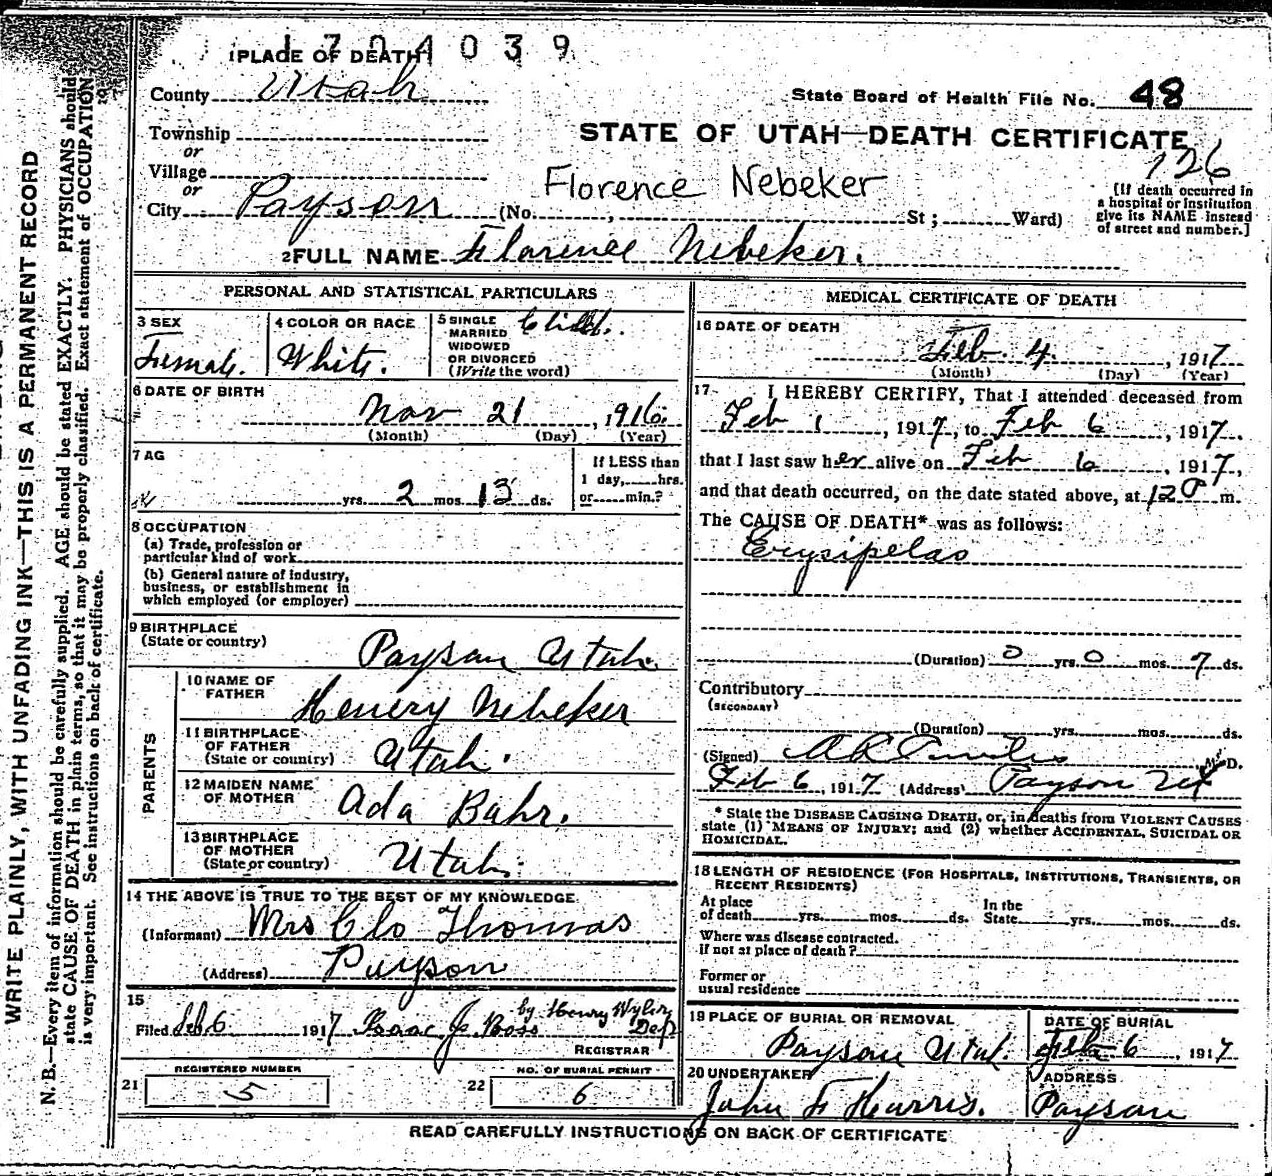 1704039
1 PLACE OF DEATH
County Utah
State Board of Health File No. 48
Township
or
STATE OF UTAH—DEATH CERTIFICATE
126
Village
or
Florence Nebeker
City Payson (No. , St ; Ward)
[If death occurred in
a hospital or institution
give its NAME instead
of street and number.]
2 FULL NAME Florence Nebeker.
PERSONAL AND STATISTICAL PARTICULARS
3 SEX
Female.
4 COLOR OR RACE
White.
5 SINGLE
MARRIED
WIDOWED
OR DIVORCED
(Write the word)
Child.
6 DATE OF BIRTH
Nov 21, 1916.
(Month) (Day) (Year)
7 AG
yrs. 2 mos. 13 ds.
If LESS than
1 day, hrs.
or min.?
8 OCCUPATION
(a) Trade, profession or
particular kind of work
(b) General nature of industry,
business, or establishment in
which employed (or employer)
9 BIRTHPLACE
(State or country)
Payson Utah.
PARENTS
10 NAME OF
FATHER
Henery Nebeker
11 BIRTHPLACE
OF FATHER
(State or country)
Utah.
12 MAIDEN NAME
OF MOTHER
Ada Bahr.
13 BIRTHPLACE
OF MOTHER
(State or country)
Utah.
14 THE ABOVE IS TRUE TO THE BEST OF MY KNOWLEDGE
(Informant) Mrs Clo Thomas
(Address) Payson
15
Filed Feb 6 1917 Isaac J. Boss by Henry Wyler Dep
REGISTRAR
21 REGISTERED NUMBER
5
22 NO. OF BURIAL PERMIT
6
MEDICAL CERTIFICATE OF DEATH
16 DATE OF DEATH
Feb. 4, 1917
(Month) (Day) (Year)
17 I HEREBY CERTIFY, That I attended deceased from
Feb 1, 1917, to Feb 6, 1917.
that I last saw her alive on Feb 6, 1917,
and that death occurred, on the date stated above, at 12 P m.
The CAUSE OF DEATH* was as follows:
Erysipelas
(Duration) 0 yrs. 0 mos. 7 ds.
Contributory
(SECONDARY)
(Duration) yrs. mos. ds.
(Signed) M. D.
Feb 6, 1917 (Address) Payson Ut
* State the DISEASE CAUSING DEATH, or, in deaths from VIOLENT CAUSES
state (1) MEANS OF INJURY; and (2) whether ACCIDENTAL, SUICIDAL OR
HOMICIDAL.
18 LENGTH OF RESIDENCE (FOR HOSPITALS, INSTITUTIONS, TRANSIENTS, OR
RECENT RESIDENTS)
At place
of death yrs. mos. ds.
In the
State yrs. mos. ds.
Where was disease contracted.
if not at place of death?
Former or
usual residence
19 PLACE OF BURIAL OR REMOVAL
Payson Utah.
DATE OF BURIAL
Feb 6, 1917
20 UNDERTAKER
John F Harris.
ADDRESS
Payson
READ CAREFULLY INSTRUCTIONS ON BACK OF CERTIFICATE
WRITE PLAINLY, WITH UNFADING INK—THIS IS A PERMANENT RECORD
N. B.—Every item of information should be carefully supplied. AGE should be stated EXACTLY. PHYSICIANS should
state CAUSE OF DEATH in plain terms, so that it may be properly classified. Exact statement of OCCUPATION
is very important. See instructions on back of certificate.